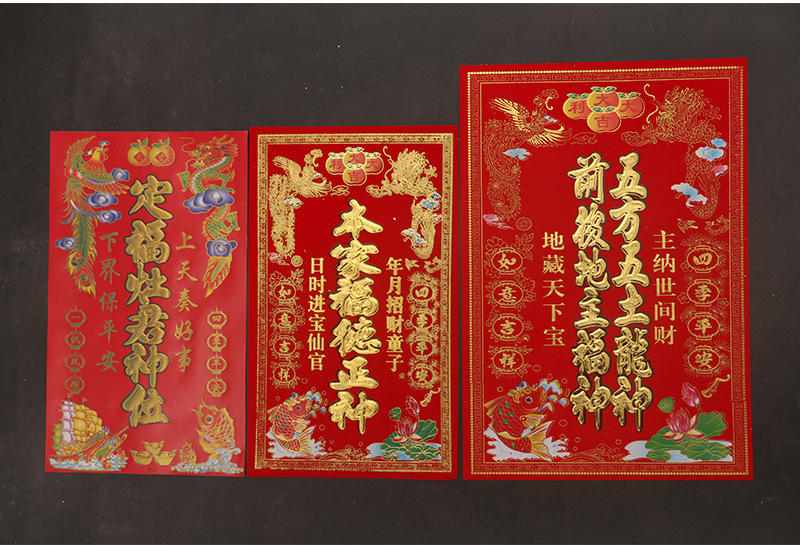 定福灶君神位
上天奏好事
下界保平安
四季平安
一帆风顺
大大
利吉
本家福德正神
年月招财童子
日时进宝仙官
四季平安
如意吉祥
大大
利吉
五方五土龍神
前後地主福神
主纳世间财
地藏天下宝
四季平安
如意吉祥